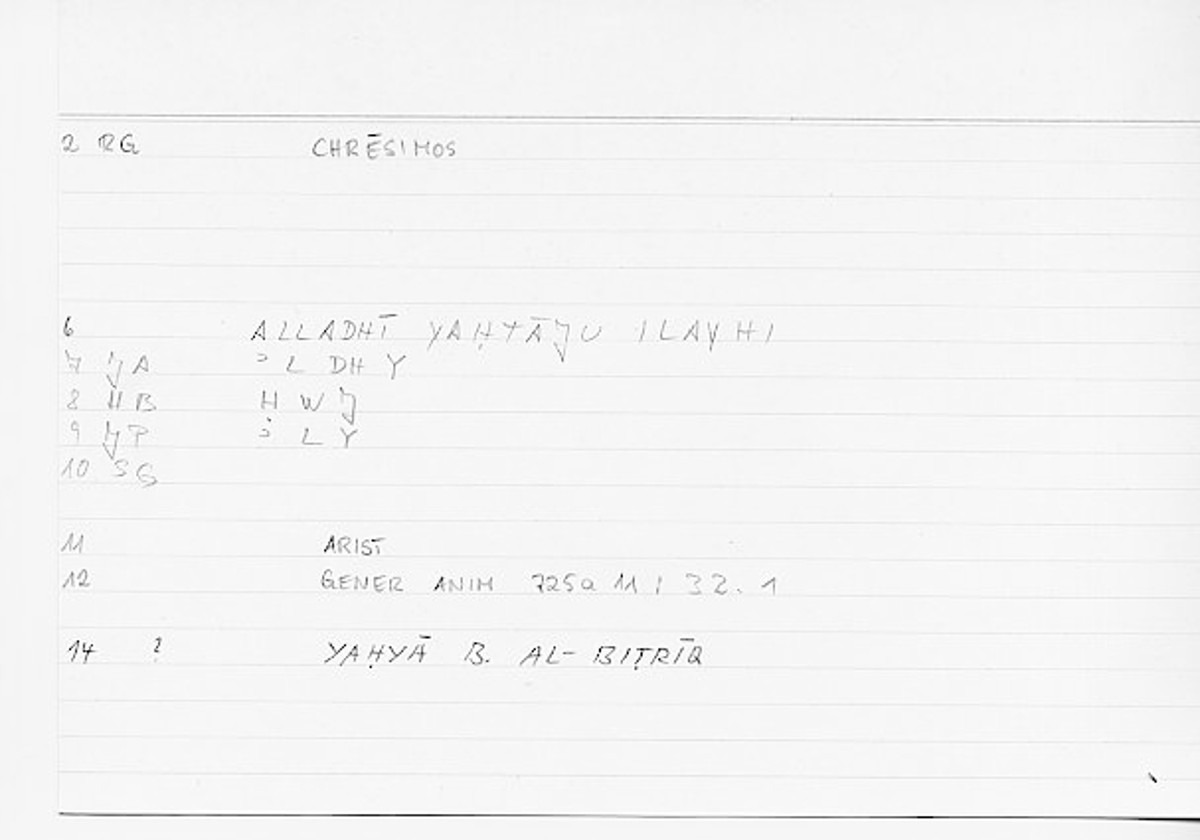 2 RG CHRĒSIMOS
6 ALLADHĪ YAḤTĀJU ILAYHI
7 JA ʾ L DH Y
8 HB Ḥ W J
9 JP ʾ L Y
10 SG
11 ARIST
12 GENER ANIM 725a 11 / 32.1
14 ? YAḤYĀ B. AL-BIṬRĪQ